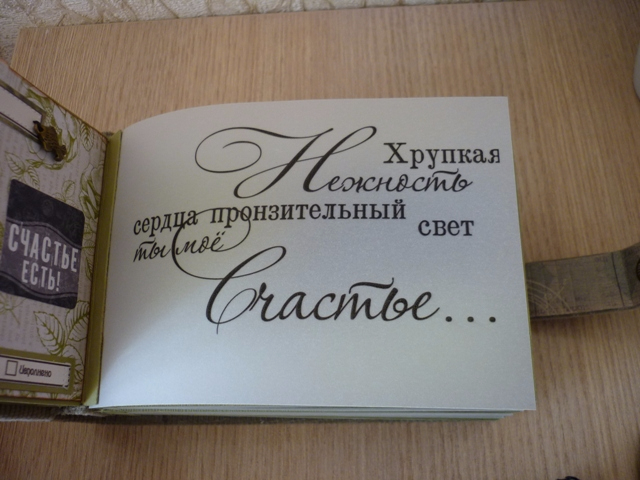 СЧАСТЬЕ
ЕСТЬ!
Хрупкая
Нежность
сердца пронзительный
свет
ты моё
Счастье...